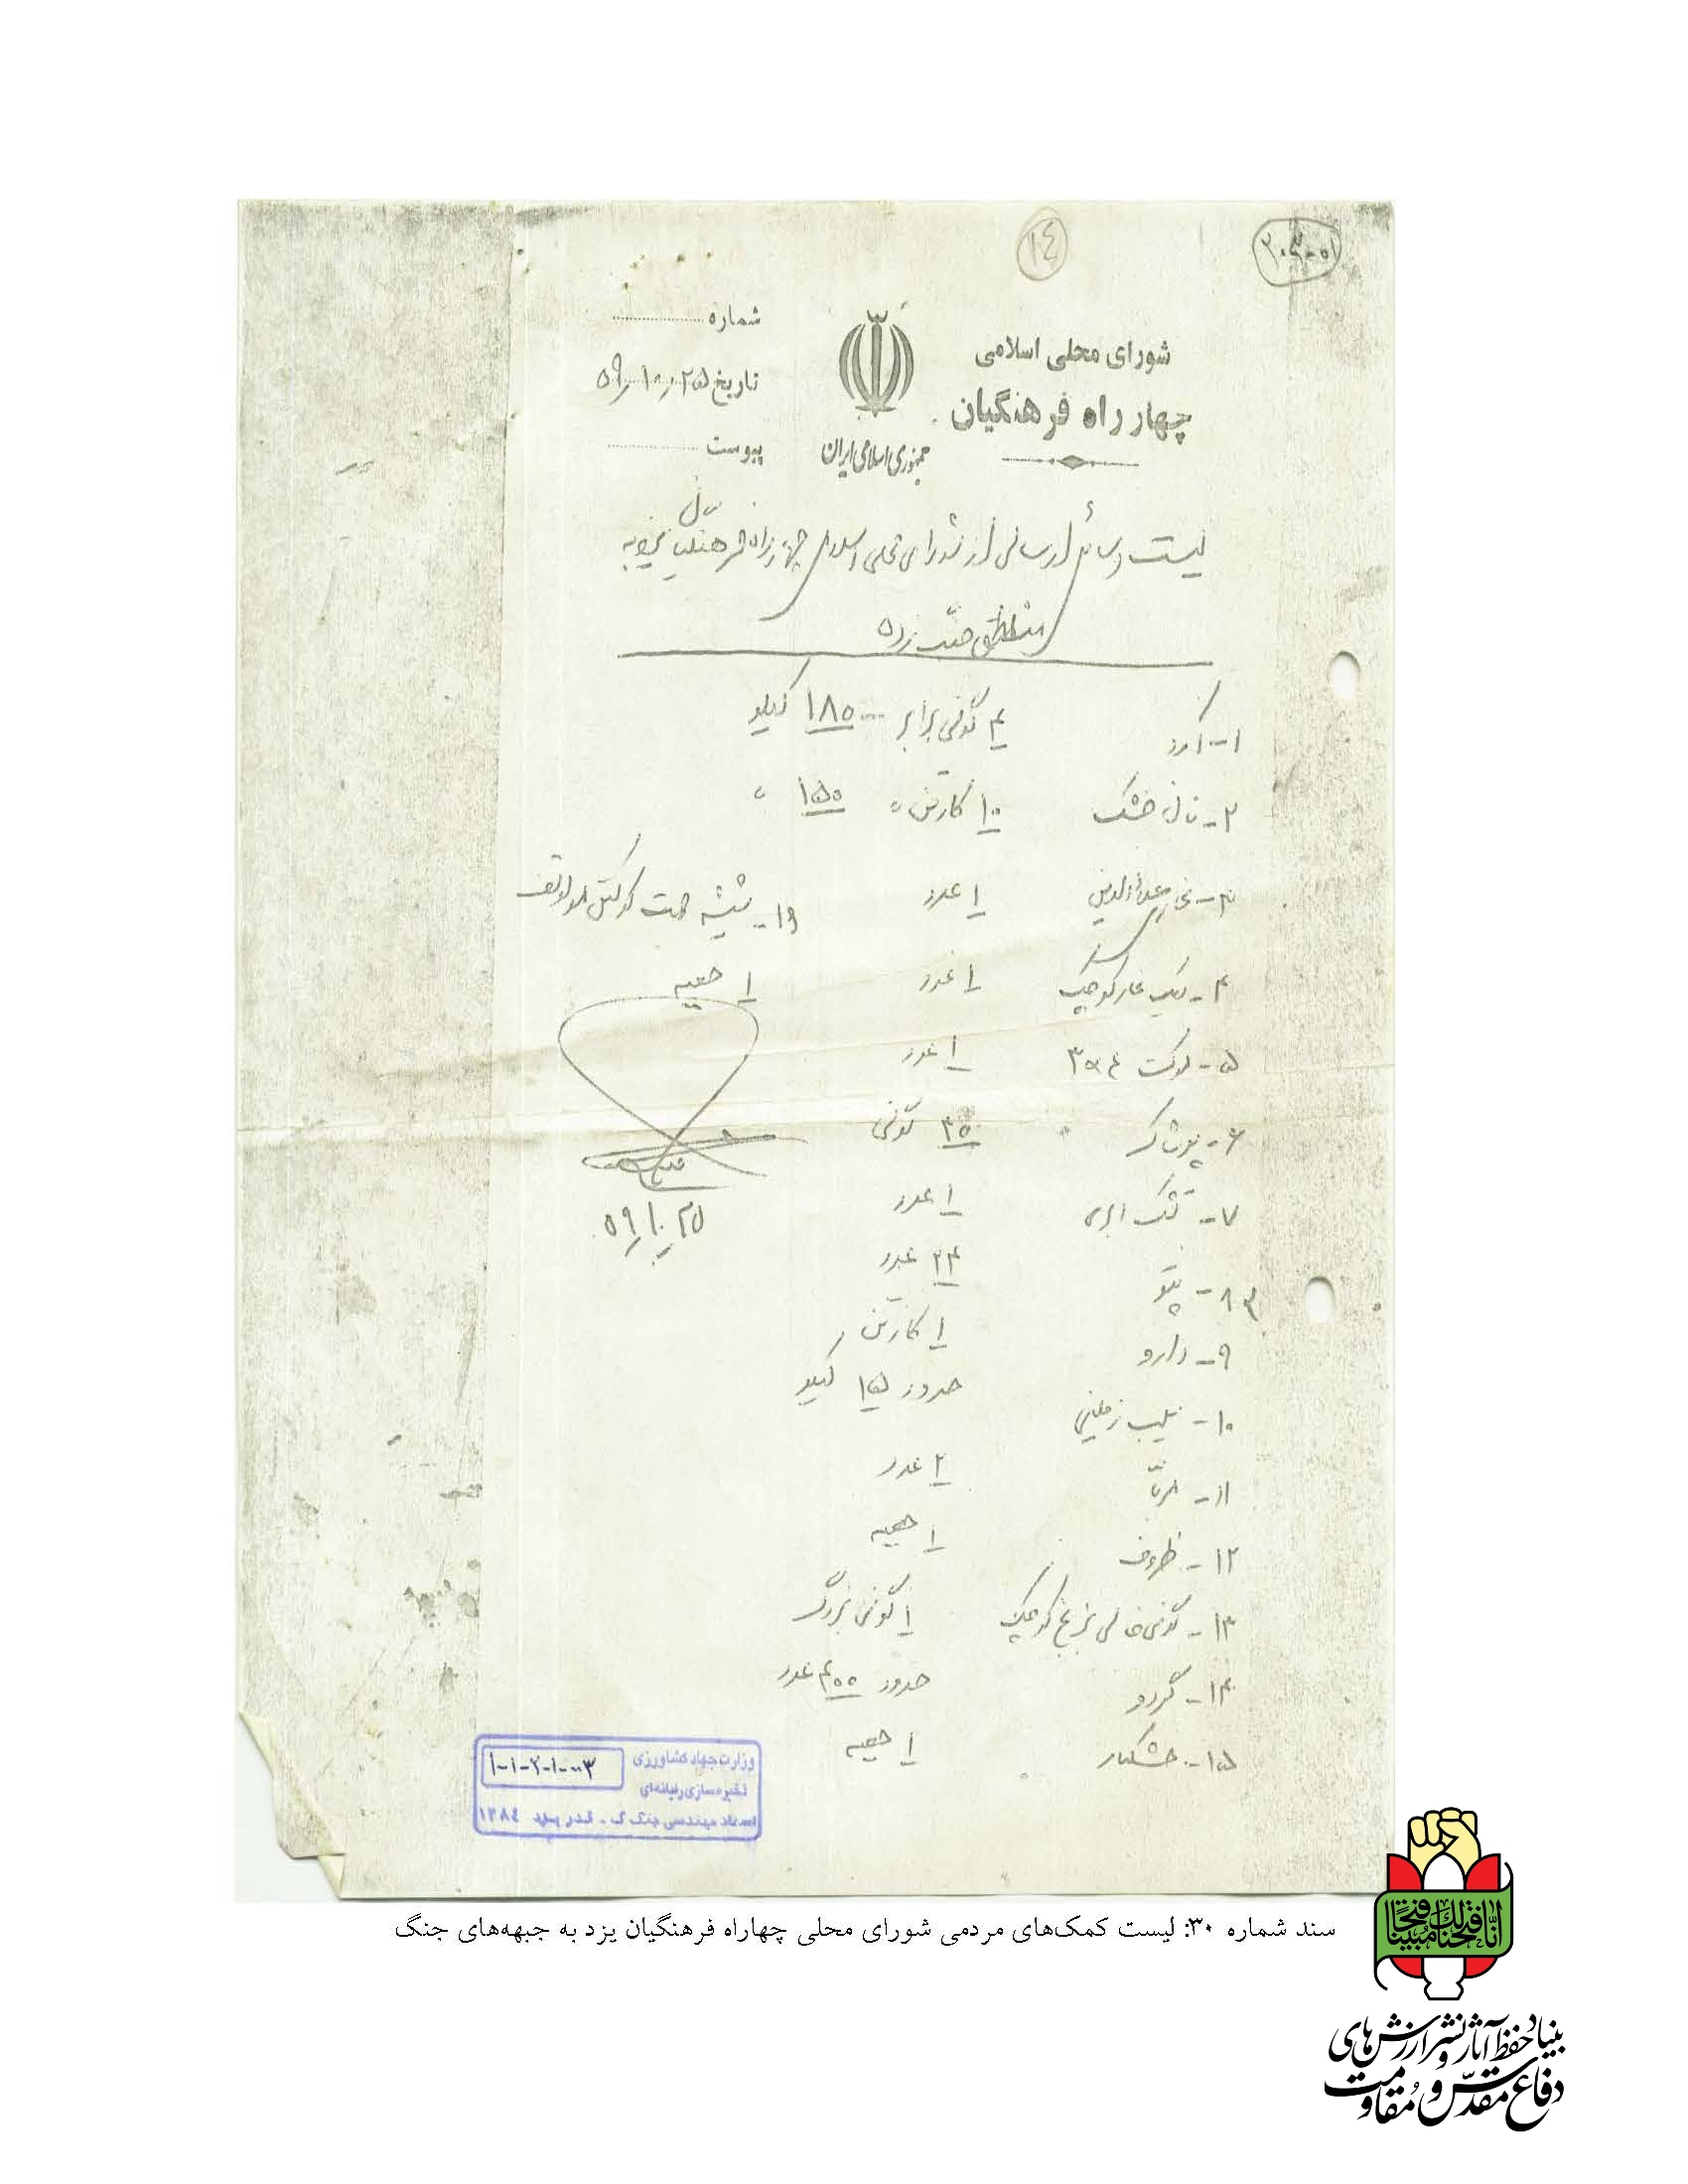 ۱۴
شورای محلی اسلامی
چهار راه فرهنگیان
جمهوری اسلامی ایران
شماره
تاریخ ۵۹/۱۰/۲۵
پیوست
لیست وسائل ارسالی از شورای محلی اسلامی چهار راه فرهنگیان یزد به
مناطق جنگ زده
۱- آرد ۴ گونی برابر ۱۸۵ کیلو
۲- نان خشک ۱۰ کارتن " ۱۵۰ "
۳- علاءالدین ۱ عدد
۴- کوچک ۱ عدد
۵- ۱ عدد
۶- پوشاک ۳۵ گونی
۷- تشک ابری ۱ عدد
۸- پتو ۲۴ عدد
۹- دارو ۱ کارتن
۱۰- سیب زمینی حدود ۱۵ کیلو
۱۱- مربّا ۲ عدد
۱۲- ظروف ۱ جعبه
۱۳- گونی خالی کوچک ۱ گونی بزرگ
۱۴- گردو حدود ۴۰۰ عدد
۱۵- خشکبار ۱ جعبه
۱۶- شیشه جهت کوکتل مولوتف
۱ جعبه
۵۹/۱۰/۲۵
وزارت جهاد کشاورزی
ذخیره سازی رایانه‌ای
۱-۱-۲-۱-۰۰۳
سند شماره ۳۰: لیست کمک‌های مردمی شورای محلی چهاراه فرهنگیان یزد به جبهه‌های جنگ
انّا فتحنا لک فتحاً مبینا
بنیاد حفظ آثار و نشر ارزش‌های
دفاع مقدّس و مقاومت